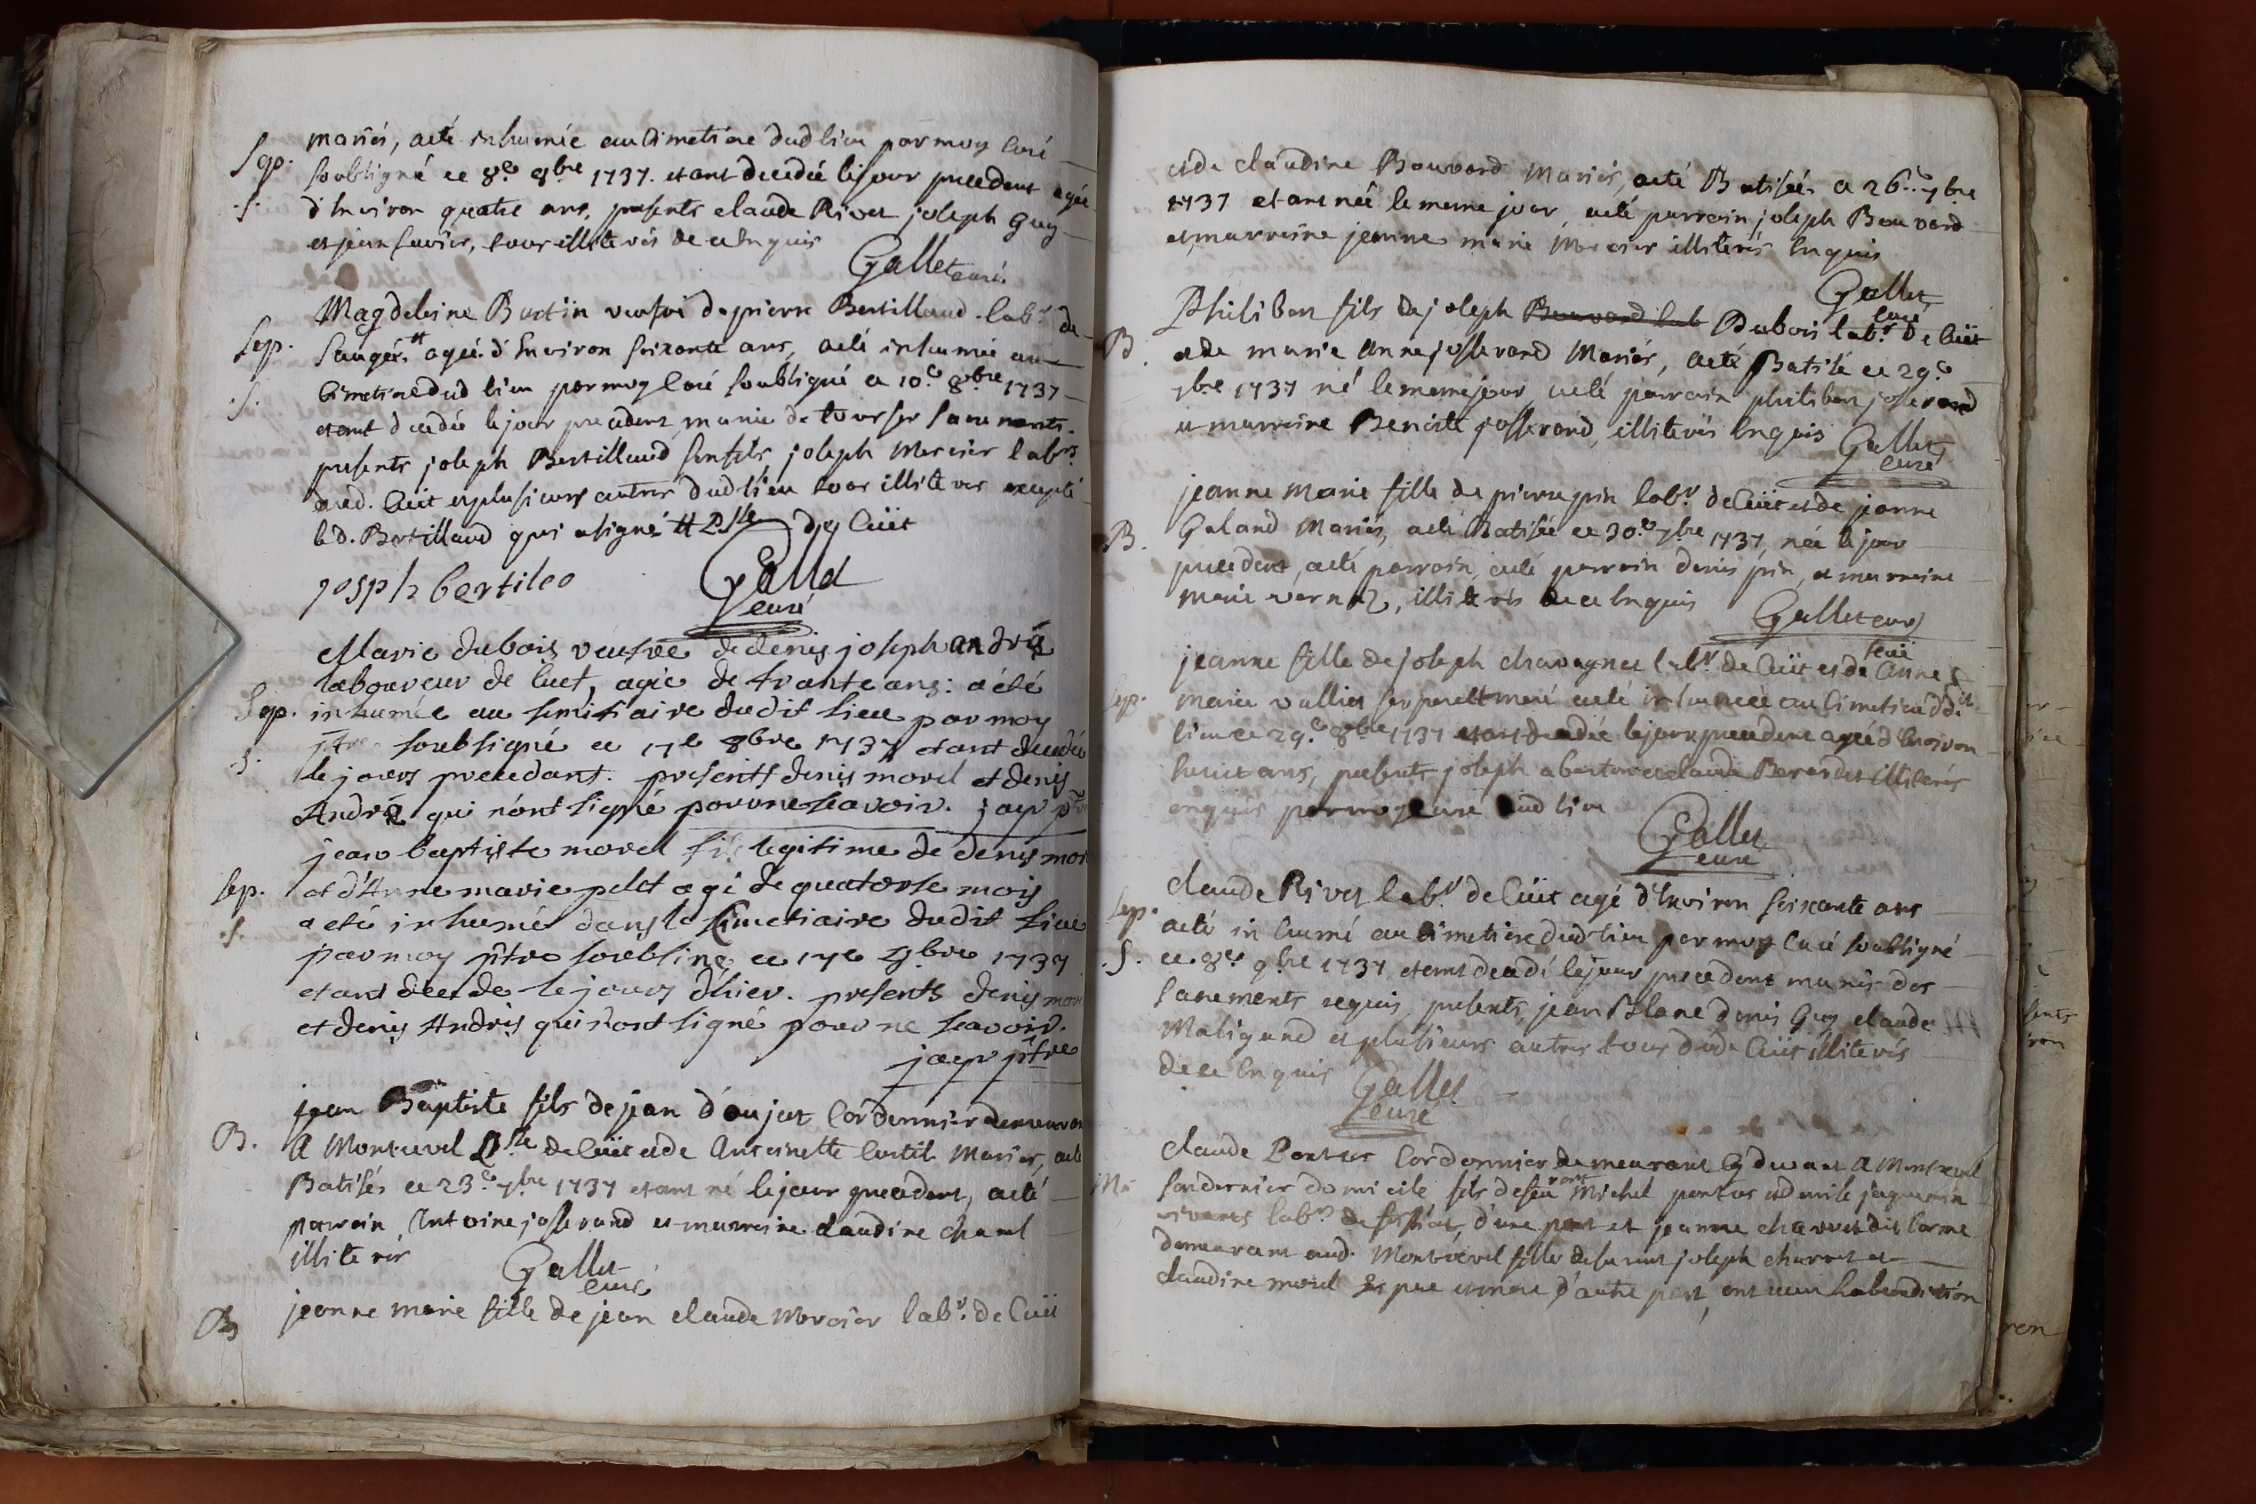 mariés, aeté inhumée au Cimetiere dud lieu par moy Curé
Sep. soubsigné ce 8.e 8bre 1737. etant decedée le jour precedent agée
.s. d'Environ quatre ans, presents claude Rivet joseph Guy
et jean , tous illiterés de ce Enquis
Gallet curé
Magdeleine Burtin veufve de pierre Bertilland lab.r de
Sep. agée d'Environ soixante ans, aeté inhumée au
.s. Cimetiere dud lieu par moy Curé soubsigné ce 10.e 8bre 1737
etant decedée le jour precedent munie de tous ses sacrements.
presents joseph Bertilland son fils joseph Mercier lab.rs
dud. Cuët et plusieurs autres dud lieu tous illiterés excepté
led. Bertilland qui a signé Cuët
Josph bertileo Gallet
curé
Marie dubois veufve de denis joseph andrés
laboureur de Cuet, agée de trante ans: a été
Sep. inhumée au simitiaire dudit lieu par moy
ptre soubsigné ce 17e 8bre 1737 etant decedée
.s. le jours precedant. presents denis morel et denis
Andrés qui n'ont signé pour ne sçavoir. jayr ptre
jean baptiste morel fils legitime de denis mor
Sep. et d'Anne marie pelet agé de quatorse mois
.s. a eté inhumé dans le simetiaire dudit lieu
par moy ptre soubsiné ce 17e 8bre 1737
etant decede le jours d'hier. presents denis mor
et denis Andrés qui n'ont signé pour ne sçavoir.
jayr ptre
jean Baptiste fils de jean d'oujat Cordonnier demeuran
B. A Montrevel de Cuët et de Antoinette Curtil Mariés, aeté
Batisés ce 23.e 7bre 1737 etant né le jour precedent, aeté
parrain Antoine josserand et marraine claudine charl
illiterés Gallet
curé
B jeanne marie fille de jean claude Mercier lab.r de Cuët
et de claudine Bouvard Mariés, aeté Batisée ce 26.e 7bre
1737 etant née le meme jour aeté parrain joseph Bouvard
et marraine jeanne marie Mercier illiterés Enquis
Gallet
curé
Philibert fils de joseph Bouvard lab Dubois lab.r de Cuët
B. et de marie Anne josserand Mariés, aeté Batisé ce 29.e
7bre 1737 né le meme jour aeté parrain philibert josserand
et marraine Benoite josserand, illiterés Enquis Gallet
curé
jeanne Marie fille de pierre pin lab.r de Cuët et de jeanne
B. Galand Mariés, aeté Batisée ce 30.e 7bre 1737, née le jour
precedent, aeté parrain, aeté parrain denis pin, et marraine
Marie vernaz, illiterés de ce Enquis Gallet curé
jeanne fille de joseph chavagnet lab.r de Cuët et de Anne
Sep. marie vullier aeté inhumée au Cimetiere dud.it
lieu ce 29.e 8bre 1737 etant decedée le jour precedent agée d'Environ
huit ans, presents joseph et claude illiterés
enquis par moy curé dud lieu
Gallet
curé
claude Rivet lab.r de Cuët agé d'Environ soixante ans
Sep. aeté inhumé au cimetiere dud lieu par moy Curé soubsigné
.s. ce 8.e 9bre 1737 etant decedé le jour precedent munis des
sacrements requis, presents jean Blanc denis Guy claude
Maligand et plusieurs autres tous dud. Cuët illiterés
de ce Enquis Gallet
curé
claude Pontus Cordonnier demeurant Cy devant A Montrevel
son dernier domicile fils de feu Michel pontus
vivants lab.rs d'une part et jeanne charvet dit
demeurant aud. Montrevel fille joseph charvet et
claudine morel ses pere et mere d'autre part, ont recu la benediction